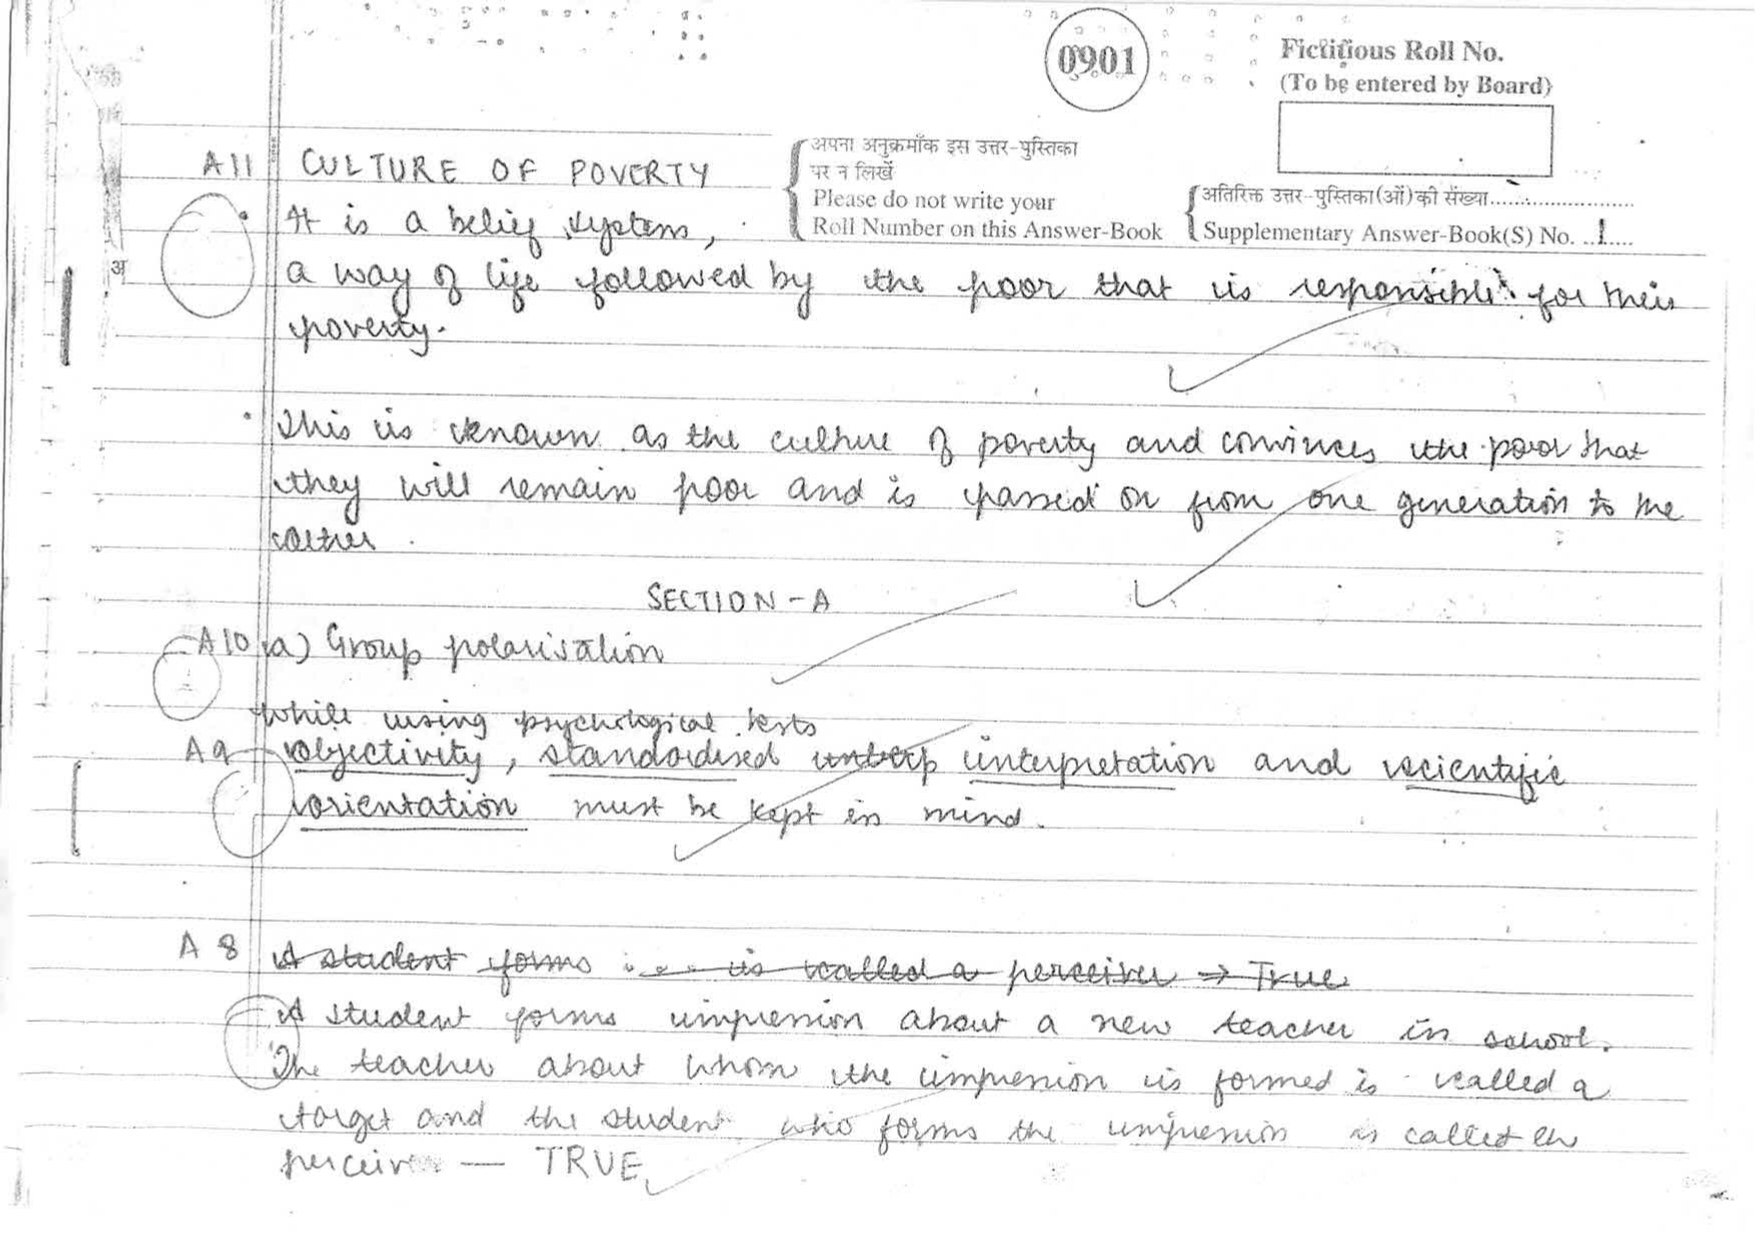 0901
Fictitious Roll No.
(To be entered by Board)
अपना अनुक्रमाँक इस उत्तर-पुस्तिका
पर न लिखें
Please do not write your
Roll Number on this Answer-Book
अतिरिक्त उत्तर-पुस्तिका(ओं) की संख्या..........
Supplementary Answer-Book(S) No. ..1....
A11 CULTURE OF POVERTY
It is a belief system,
a way of life followed by the poor that is responsible for their
poverty.
This is known as the culture of poverty and convinces the poor that
they will remain poor and is passed on from one generation to the
other.
SECTION-A
A10 (a) Group polarisation
while using psychological tests
A9 objectivity, standardised interpretation and scientific
orientation must be kept in mind.
A8 A student forms ... is called a perceiver → True
A student forms impression about a new teacher in school.
The teacher about whom the impression is formed is called a
target and the student who forms the impression is called
perceiver — TRUE